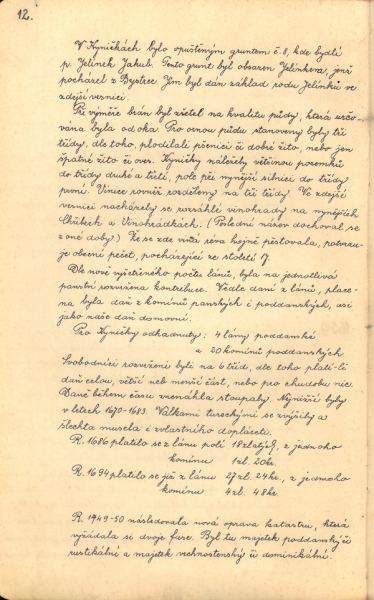 12.
V Kyničkách bylo opuštěným gruntem č. 8, kde bydlí
p. Jelínek Jakub. Tento grunt byl obsazen Jelínkem, jenž
pocházel z Bystrce. Jím byl dán základ rodu Jelínků ve
zdejší vesnici.
Při výměře brán byl zřetel na kvalitu půdy, která určo-
vána byla od oka. Pro ornou půdu stanoveny byly tři
třídy, dle toho, plodila-li pšenici či dobré žito, nebo jen
špatné žito či oves. Kyničky náležely většinou pozemků
do třídy druhé a třetí, pole při nynější silnici do třídy
první. Vinice rovněž rozděleny na tři třídy. Ve zdejší
vesnici nacházely se rozsáhlé vinohrady na nynějších
Chlubech a Vinohrádkách. (Poslední název dochoval se
z oné doby.) Že se zde vinná réva hojně pěstovala, potvrzu-
je obecní pečeť, pocházející ze století 17.
Dle nově vyšetřeného počtu lánů, byla na jednotlivá
panství rozvržena kontribuce. Vedle daní z lánů, place-
na byla daň z komínů panských i poddanských, asi
jako naše daň domovní.
Pro Kyničky odhadnuty: 4 lány poddanské
a 20 komínů poddanských
Svobodníci rozvrženi byli na 6 tříd, dle toho platí-li
daň celou, větší neb menší část, nebo pro chudobu nic.
Daně během času znenáhla stoupaly. Nejnižší byly
v letech 1670-1683. Válkami tureckými se zvýšily a
šlechta musela i zvlastního dopláceti.
R. 1686 platilo se z lánu polí 18 zlatých, z jednoho
komínu 1 zl. 20 kr.
R. 1694 platilo se již z lánu 27 zl. 24 kr., z jednoho
komínu 4 zl. 48 kr.
R. 1749-50 následovala nová oprava katastru, která
vyžádala si dvoje fase. Byl tu majetek poddanský či
rustikální a majetek vrchnostenský či dominikální.